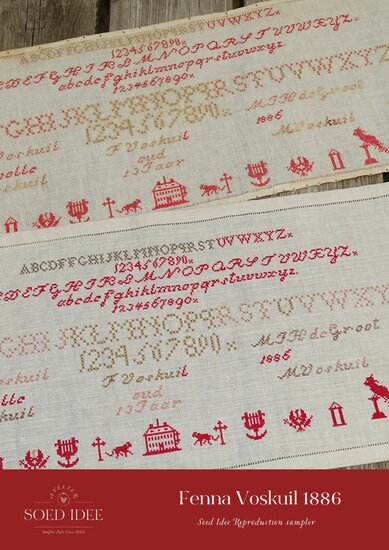 ABCDEFGHIJKLMNOPQRSTUVWXYZ×
1234567890×
DEFGHIJKLMNOPQRSTUVWXYZ.
abcdefghiklmnopqrstuvwxyz.
1234567890×
GHIJKLMNOPQRSTUVWXYZ
1234567890×
F Voskuil
M J H de Groot
oud
1886
13 Jaar
M Voskuil
ABCDEFGHIJKLMNOPQRSTUVWXYZ×
1234567890×
DEFGHIJKLMNOPQRSTUVWXYZ.
abcdefghiklmnopqrstuvwxyz.
1234567890×
GHIJKLMNOPQRSTUVWXYZ
1234567890×
F Voskuil
M J H de Groot
oud
1886
13 Jaar
M Voskuil
ATELIER
SOED IDEE
Sampler Style Cross Stitch
Fenna Voskuil 1886
Soed Idee Reproduction sampler